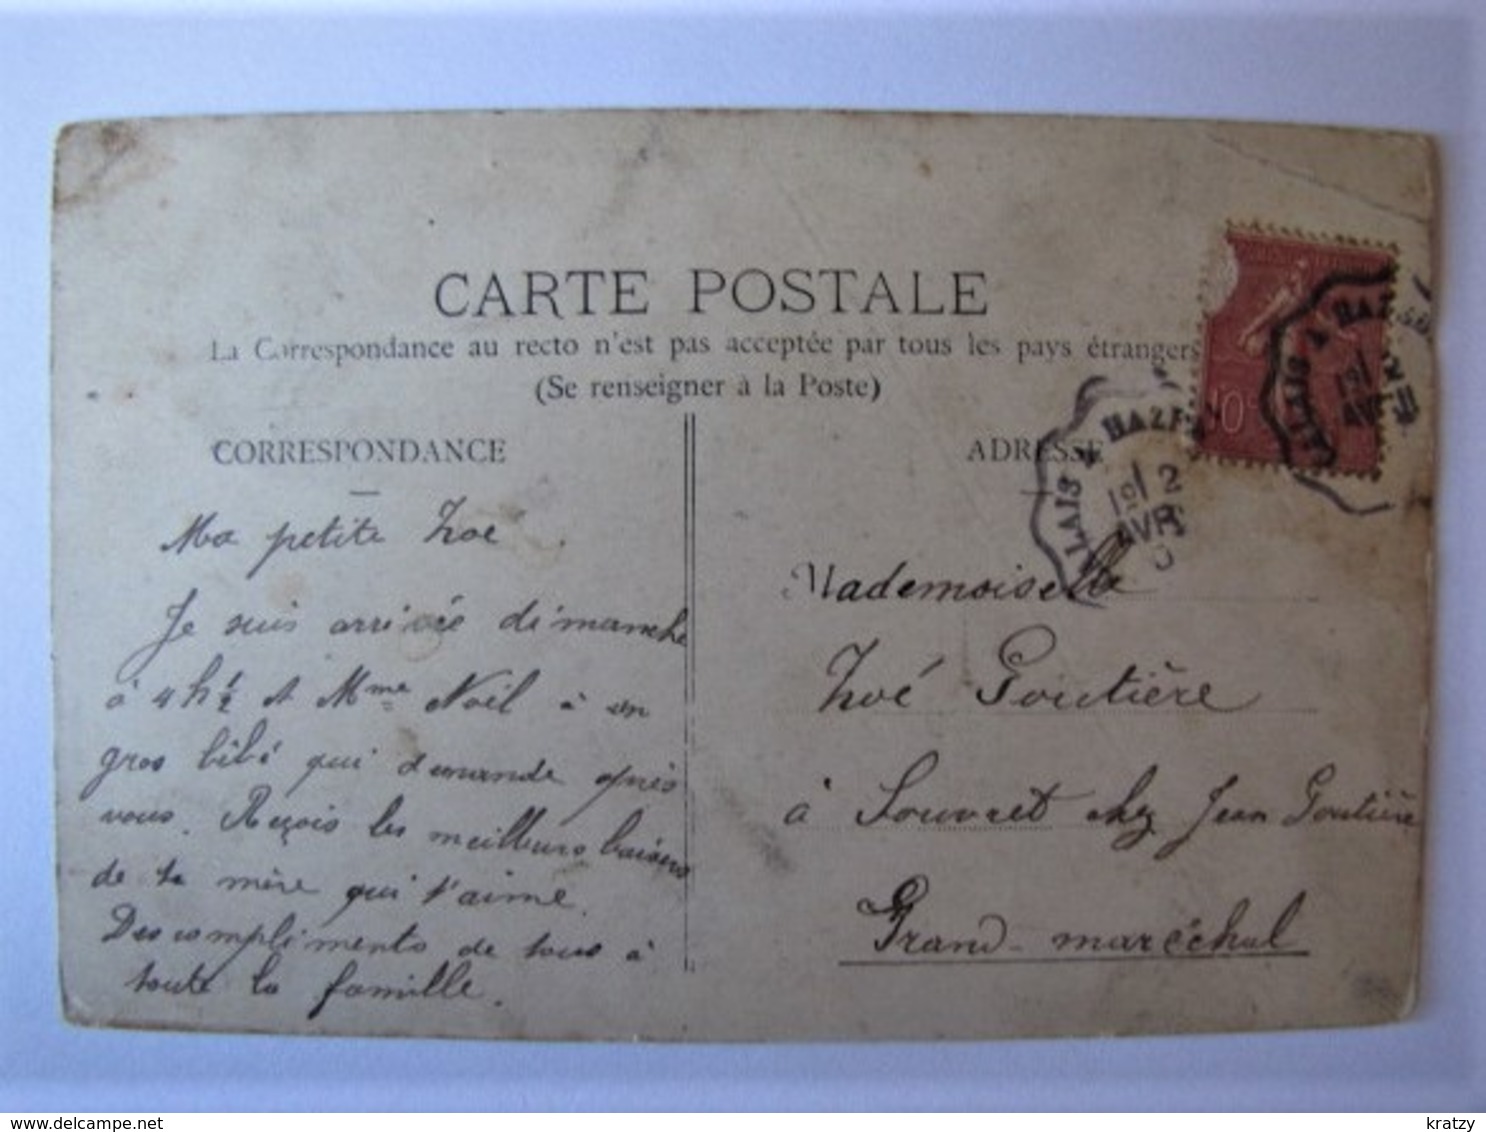 CARTE POSTALE
La Correspondance au recto n'est pas acceptée par tous les pays étrangers
(Se renseigner à la Poste)
CORRESPONDANCE
Ma petite Zoé
Je suis arrivée dimanche
à 4 h ½ et Mme Noël à un
gros bébé qui demande après
vous. Reçois les meilleurs baisers
de ta mère qui t'aime.
Des compliments de tous à
toute la famille.
ADRESSE
Mademoiselle
Zoé Goutière
à Souvret chez Jean Goutière
Grand-maréchal
10
LAIS A HAZEB
1º/ 2
AVR
LAIS A HAZEB
1º/
AVR
delcampe.net
kratzy